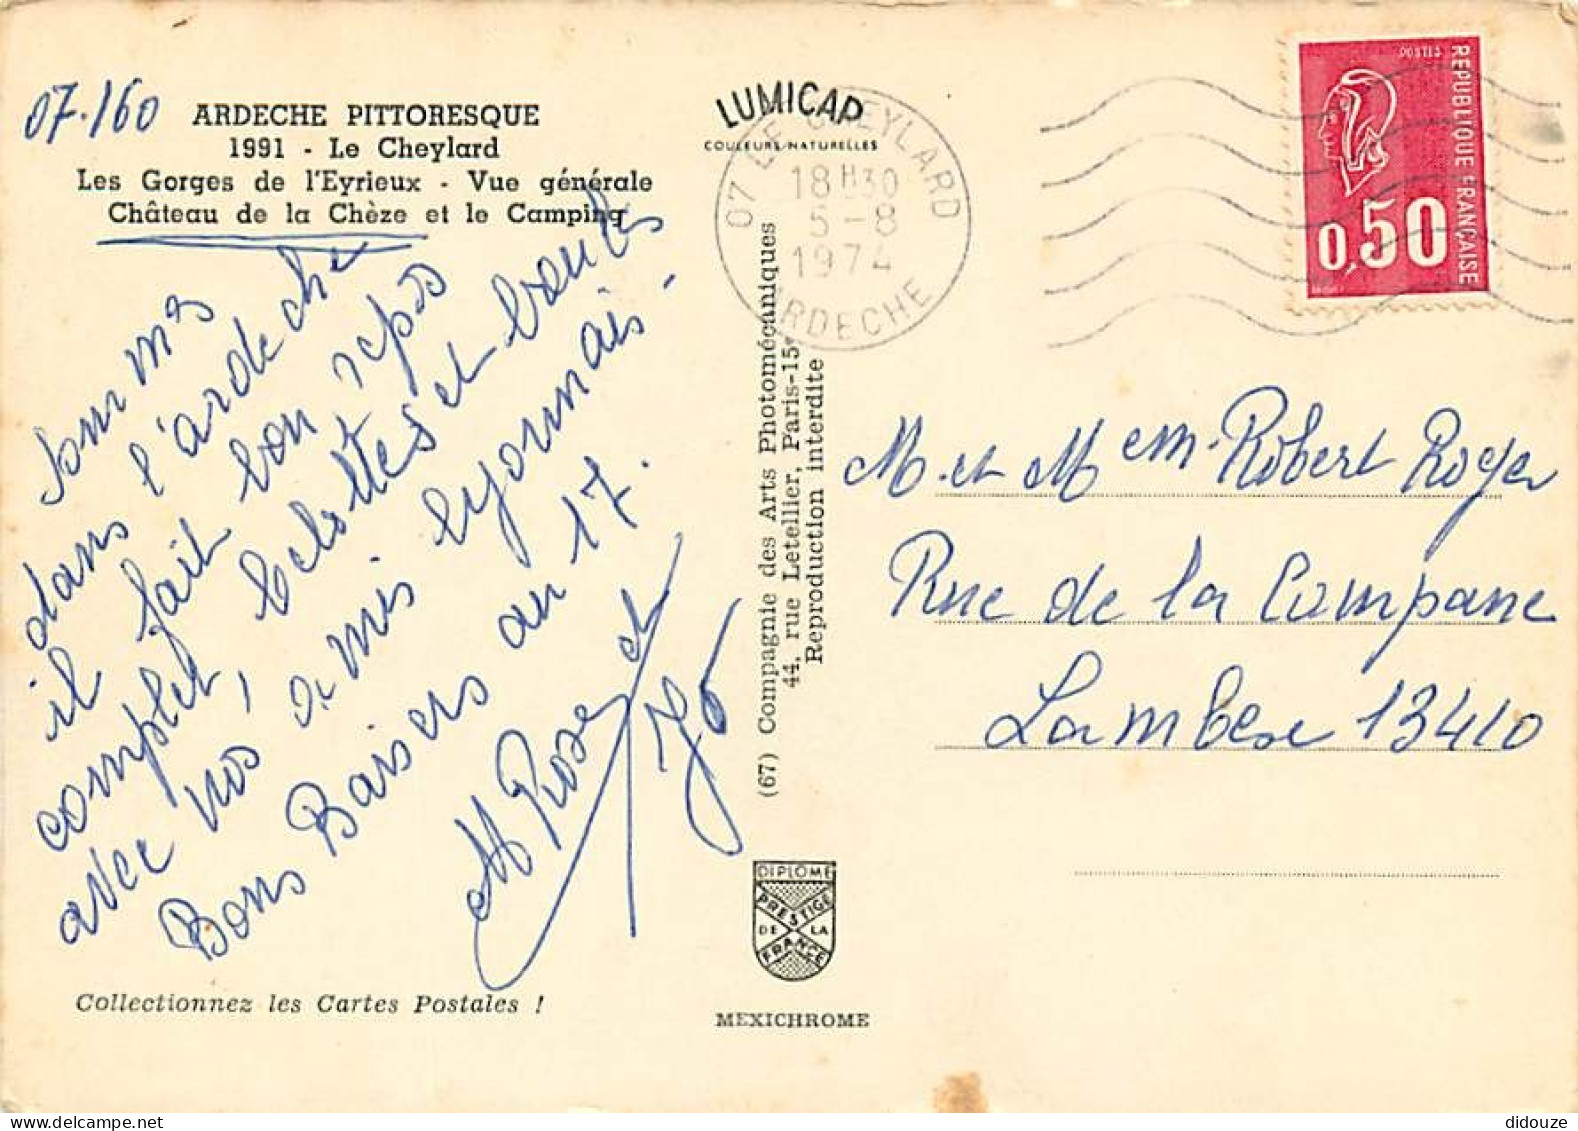 07.160
ARDECHE PITTORESQUE
1991 - Le Cheylard
Les Gorges de l'Eyrieux - Vue générale
Château de la Chèze et le Camping
Sommes
dans l'ardeche
il fait bon repos
complet, belottes et boules
avec nos amis lyonnais -
Bons Baisers au 17.
M Rose et
Collectionnez les Cartes Postales !
LUMICAP
COULEURS NATURELLES
07 LE CHEYLARD
18 H 30
5-8
1974
ARDECHE
(67) Compagnie des Arts Photomécaniques
44, rue Letellier, Paris-15e
Reproduction interdite
DIPLOME
PRESTIGE
DE LA
FRANCE
MEXICHROME
POSTES
REPUBLIQUE FRANÇAISE
0,50
M. et Mem. Robert Roger
Rue de la Campane
Lambesc 13410
didouze